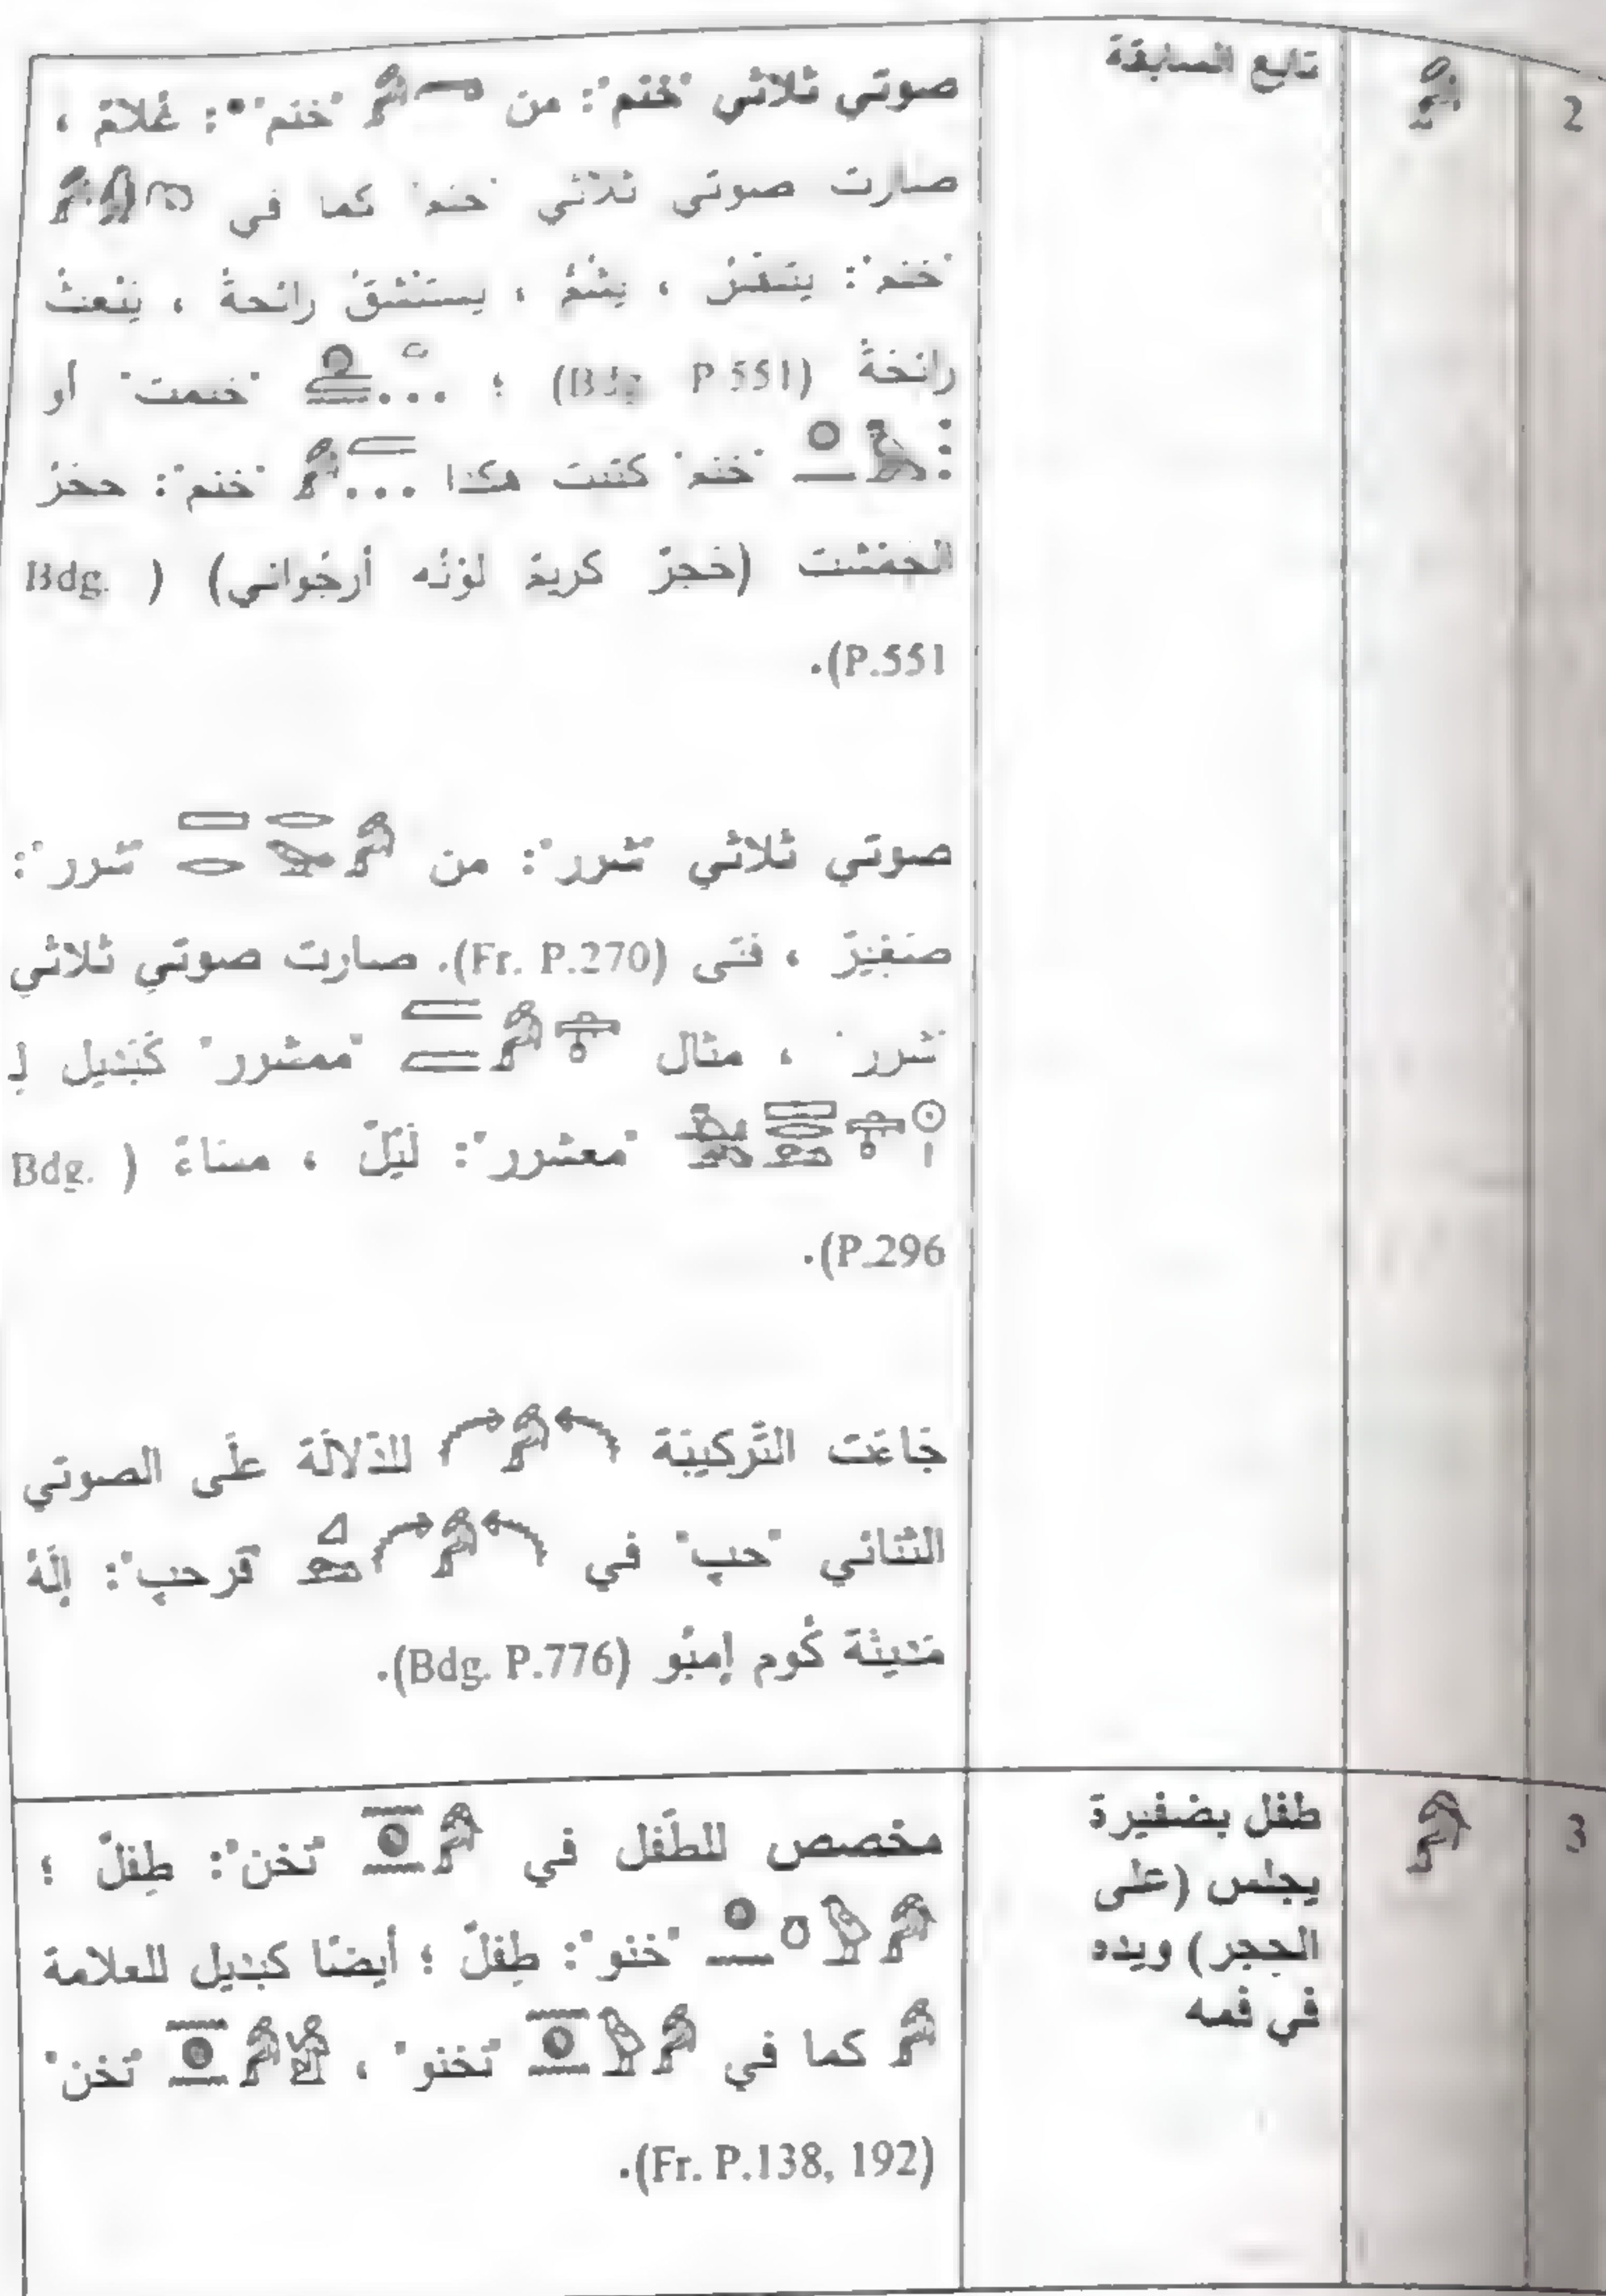 2
تابع السابقة
صوتي ثلاثي "خنم": من "خنم": غُلامٌ ،
صارت صوتي ثلاثي "خنم" كما في
"خنم": يتنفسُ ، يشُمُ ، يستنشقُ رائحةً ،
رائحةً (Bdg. P.551) ؛ "خنمت" أو
"خنم" كتبت هكذا "خنم": حجرُ
الجمشت (حَجرٌ كريمٌ لونُه أرجُواني) (Bdg.
P.551).
صوتي ثلاثي "شرر": من "شرر":
صَغِيرٌ ، فَتَى (Fr. P.270). صارت صوتي ثلاثي
"شرر" ، مثال "ممشرر" كَبَديل لِـ
"معشرر": لَيْلٌ ، مساءٌ (Bdg.
P.296).
جَاءَت التَّركيبَة للدَّلالَة علَى الصوتي
الثنائي "حب" في "قرحب": إلَهُ
مَدينَة كُوم إمبُو (Bdg. P.776).
3
طفل بضفيرة
يجلس (على
الحجر) ويده
في فمه
مخصص للطَّفل في "نخن": طِفلٌ ؛
"خنو": طِفلٌ ؛ أيضًا كبَديل للعلامة
كما في "نخنو" ، "نخن"
(Fr. P.138, 192).